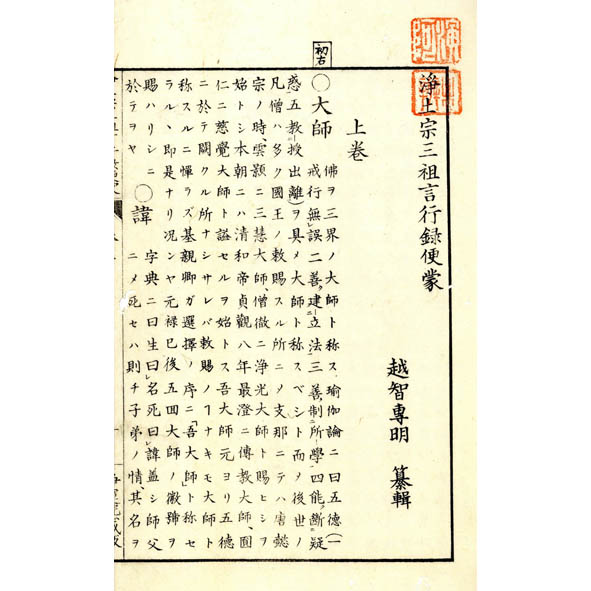 淨土宗三祖言行録便蒙
越智專明 纂輯
上卷
初右
○大師 佛ヲ三界ノ大師ト称ス、瑜伽論ニ曰五德(一
戒行無レ誤二善建二立法一三善制二所學一四能斷二疑
惑一五教二授出離一)ヲ具メ大師ト称スベシト而メ後世ノ
凡僧ハ多ク國王ノ敕賜スル所ニメ支那ニテハ唐懿
宗ノ時、雲顥ニ三慧大師、僧徹ニ浄光大師ト賜ヒシヲ
始トシ本朝ニハ清和帝貞觀八年最澄ニ傳教大師、圓
仁ニ慈覺大師ト謚セルヲ始トス吾大師元ヨリ五德
ニ於テ闕クル所ナシサレバ敕賜ノヿナキモ大師ト
称スルニ憚ラズ基親卿ガ選擇ノ序ニ「吾大師」ト称セ
ラル、即是ナリ况ンヤ元禄巳後五囬大師ノ徽號ヲ
賜ハリシニ ○諱 字典ニ曰生曰レ名死曰レ諱蓋シ師父
於テヲヤ ニメ死セハ則チ子弟ノ情、其名ヲ